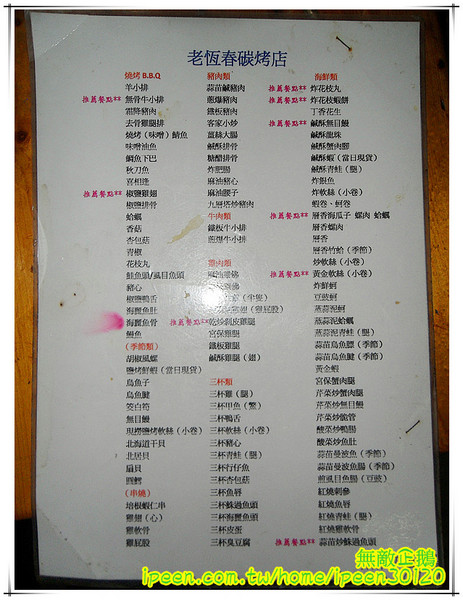 老恆春碳烤店
燒烤 B.B.Q
羊小排
推薦餐點** 無骨牛小排
霜降豬肉
去骨雞腿排
燒烤（味噌）鯖魚
味噌油魚
鯛魚下巴
秋刀魚
喜相逢
推薦餐點** 椒鹽雞翅
椒鹽排骨
蛤蠣
香菇
杏包菇
青椒
花枝丸
鮭魚頭/虱目魚頭
豬心
椒鹽鴨舌
海鱺魚肚
海鱺魚骨
鯛魚
（季節類）
胡椒風螺
鹽烤鮮蝦（當日現貨）
烏魚子
烏魚腱
筊白筍
無目鰻
現撈鹽烤軟絲（小卷）
北海道干貝
北居貝
扇貝
圓鱈
（串燒）
培根蝦仁串
雞翅（心）
雞軟骨
雞屁股
豬肉類
蒜苗鹹豬肉
蔥爆豬肉
鐵板豬肉
客家小炒
薑絲大腸
鹹酥排骨
糖醋排骨
炸肥腸
麻油豬心
麻油腰子
九層塔炒豬肉
牛肉類
鐵板牛小排
蔥爆牛小排
雞肉類
（半隻）
（雞屁股）
推薦餐點** 乾炒刈皮雞腿
鹽酥雞腿
鐵板雞腿
鹹酥雞腿（翅）
三杯類
三杯雞（腿）
三杯甲魚（鱉）
三杯鴨舌
三杯軟絲（小卷）
三杯豬心
三杯青蛙（腿）
三杯行仔魚
三杯魚唇
三杯鮢過魚頭
三杯海鱺魚頭
三杯皮蛋
三杯臭豆腐
海鮮類
推薦餐點** 炸花枝丸
推薦餐點** 炸花枝蝦餅
丁香花生
推薦餐點** 鹹酥無目鰻
鹹酥龍珠
鹹酥蟹肉腳
鹹酥蝦（當日現貨）
鹹酥青蛙（腿）
炸銀魚
炸軟絲（小卷）
蝦卷、蚵卷
推薦餐點** 層香海瓜子 螺肉 蛤蠣
層香螺肉
層香
層香竹蛤（季節）
炒軟絲（小卷）
推薦餐點** 黃金軟絲（小卷）
炸鮮蚵
豆豉蚵
蒸蒜泥蚵
蒸蒜泥蛤蠣
蒜泥青蛙（腿）
蒜苗烏魚膘（季節）
蒜苗烏魚腱（季節）
黃金蝦
宮保蟹肉腿
芹菜炒蟹肉腿
芹菜炒無目鰻
芹菜炒脆管
酸菜炒鴨腸
酸菜炒魚肚
蒜苗曼波魚（季節）
蒜苗曼波魚腸（季節）
煎虱目魚腸（豆豉）
紅燒刺參
紅燒魚唇
紅燒青蛙（腿）
紅燒雞軟骨
推薦餐點** 蒜苗炒鮢過魚頭
無敵企鵝
ipeen.com.tw/home/ipeen30120